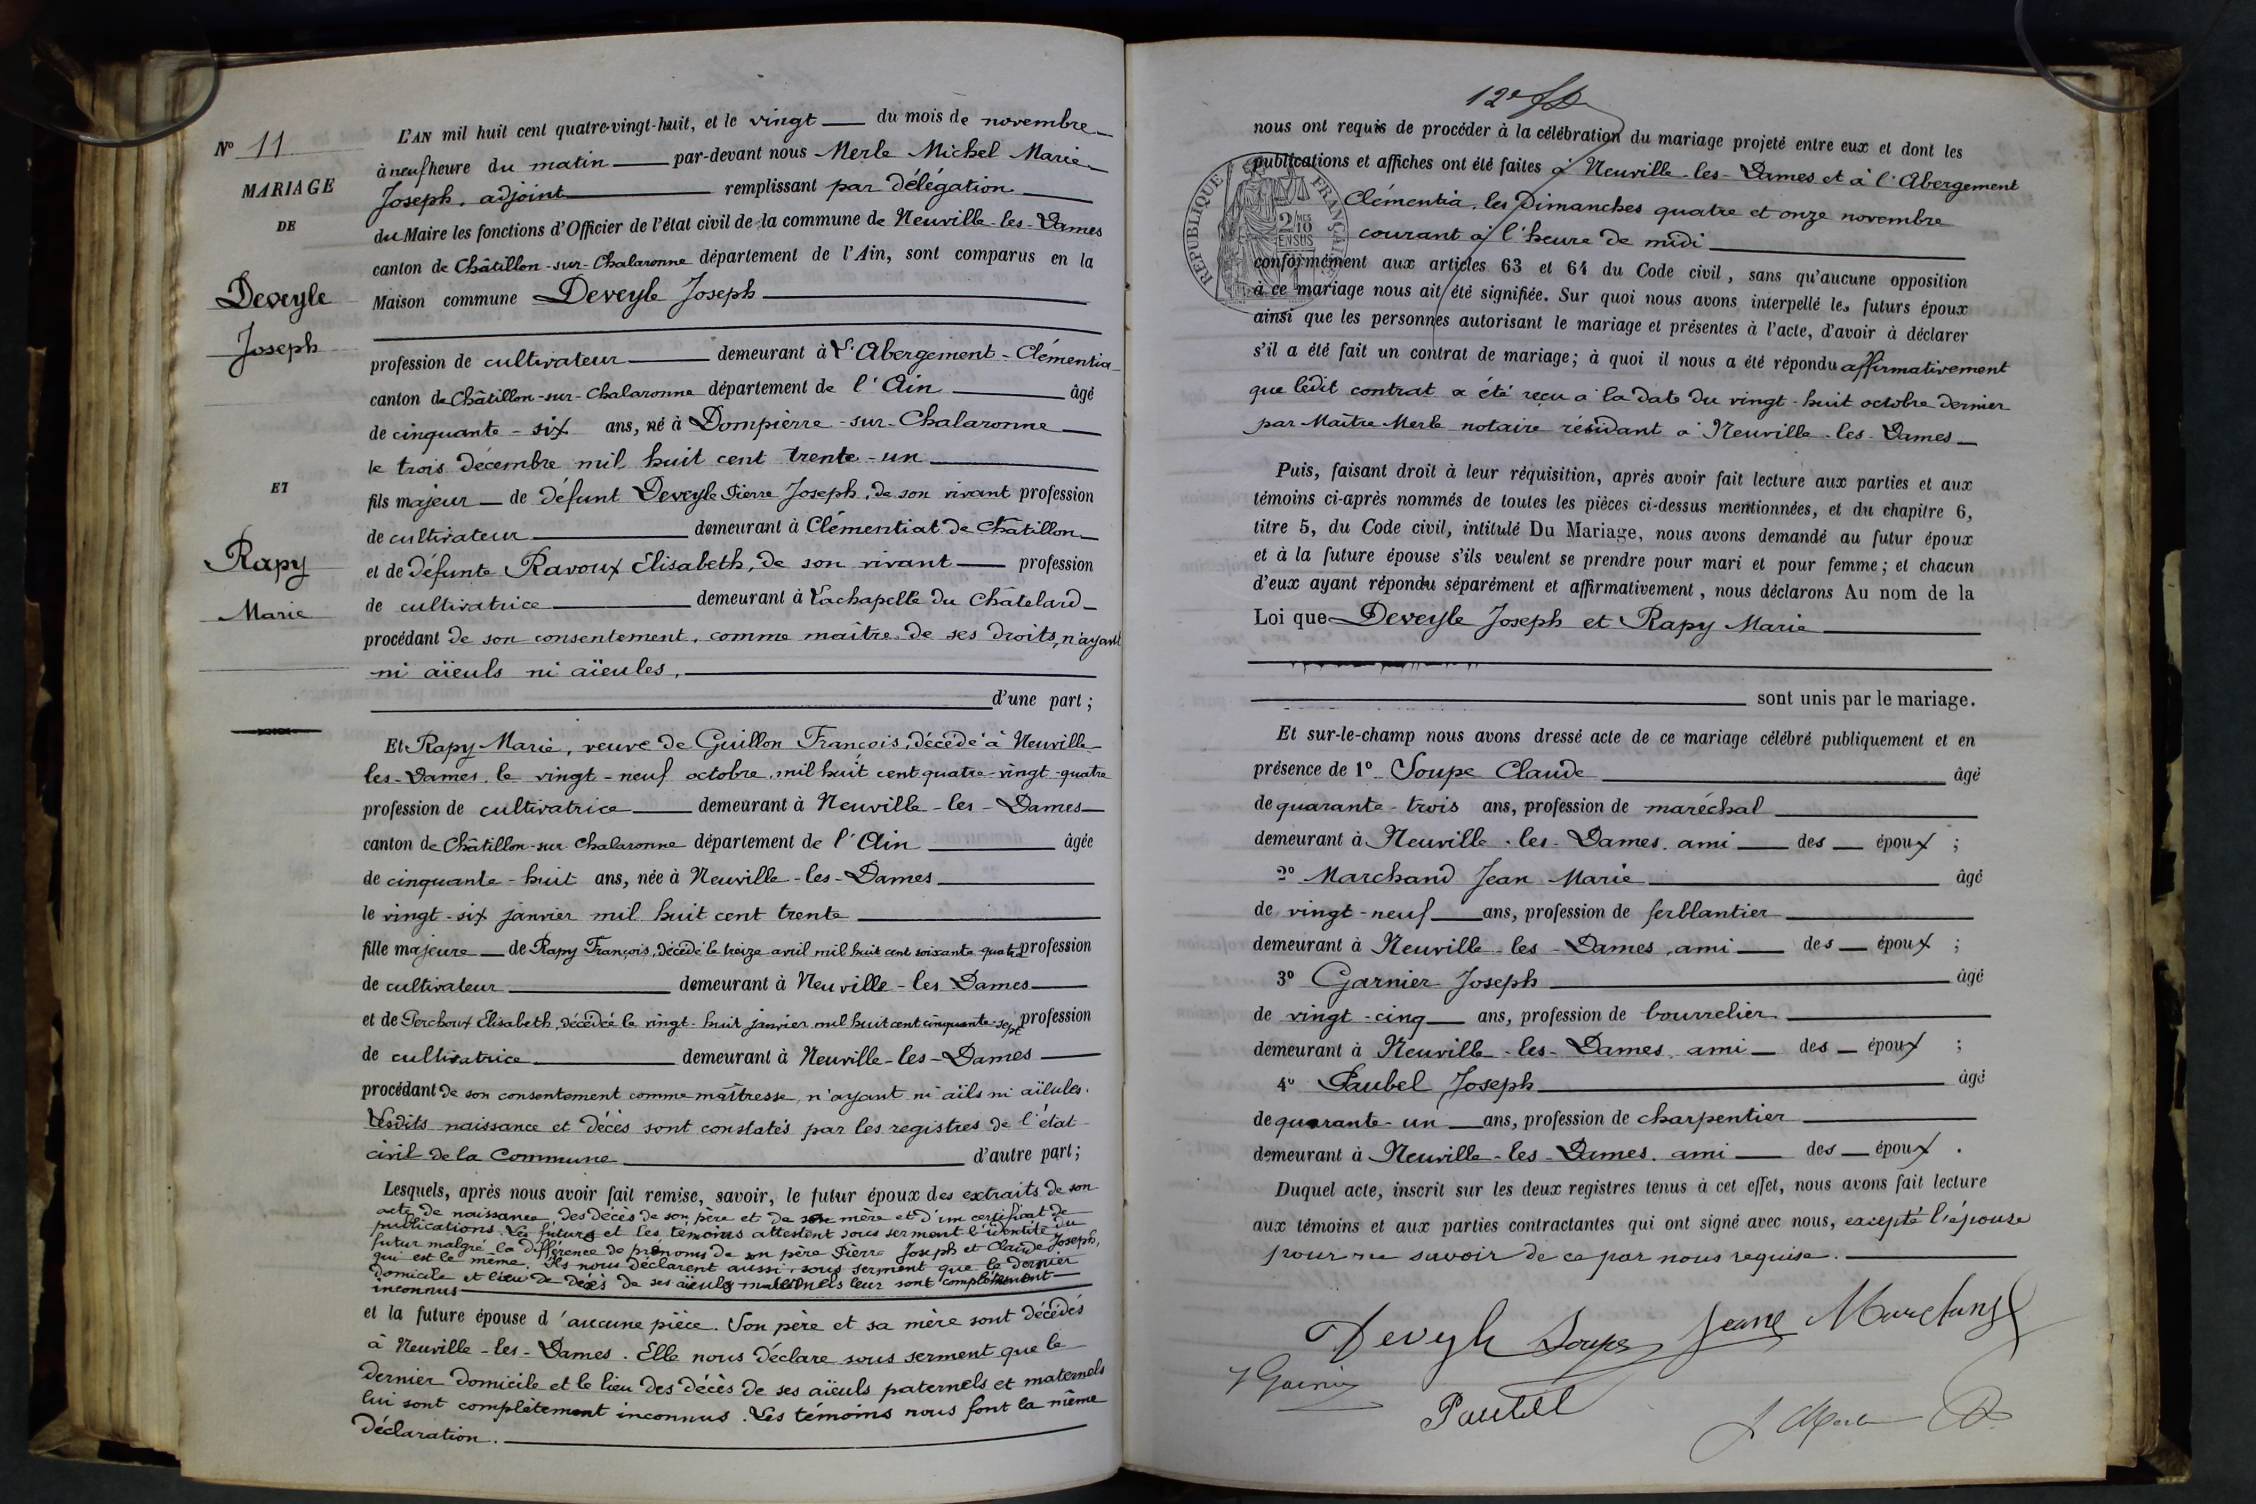 Nº 11
MARIAGE
DE
Deveyle
Joseph
ET
Rapy
Marie
L'AN mil huit cent quatre-vingt-huit, et le vingt du mois de novembre
à neuf heure du matin par-devant nous Merle Michel Marie
Joseph, adjoint remplissant par délégation
du Maire les fonctions d'Officier de l'état civil de la commune de Neuville-les-Dames
canton de Châtillon-sur-Chalaronne département de l'Ain, sont comparus en la
Maison commune Deveyle Joseph
profession de cultivateur demeurant à L'Abergement-Clémentia
canton de Châtillon-sur-Chalaronne département de l'Ain âgé
de cinquante-six ans, né à Dompierre-sur-Chalaronne
le trois décembre mil huit cent trente-un
fils majeur de défunt Deveyle Pierre Joseph, de son vivant profession
de cultivateur demeurant à Clémentiat de Châtillon
et de défunte Ravoux Elisabeth, de son vivant profession
de cultivatrice demeurant à Lachapelle du Châtelard
procédant de son consentement, comme maître de ses droits, n'ayant
ni aïeuls ni aïeules,
d'une part;
Et Rapy Marie, veuve de Guillon François, décédé à Neuville-
les-Dames, le vingt-neuf octobre, mil huit cent quatre-vingt-quatre
profession de cultivatrice demeurant à Neuville-les-Dames
canton de Châtillon-sur-Chalaronne département de l'Ain âgée
de cinquante-huit ans, née à Neuville-les-Dames
le vingt-six janvier mil huit cent trente
fille majeure de Rapy François, décédé le treize avril mil huit cent soixante-quatre profession
de cultivateur demeurant à Neuville-les Dames
et de Perchoux Elisabeth, décédée le vingt-huit janvier mil huit cent cinquante-sept profession
de cultivatrice demeurant à Neuville-les-Dames
procédant de son consentement comme maîtresse, n'ayant ni aïls ni aïlules.
Lesdits naissance et décès sont constatés par les registres de l'état
civil de la Commune d'autre part;
Lesquels, après nous avoir fait remise, savoir, le futur époux des extraits de son
acte de naissance des décès de son père et de sa mère et d'un certificat de
publications. Les futurs et les témoins attestent sous serment l'identité du
futur malgré la différence de prénoms de son père Pierre Joseph et Claude Joseph,
qui est le même. Ils nous déclarent aussi, sous serment que le dernier
domicile et lieu de décès de ses aïeuls maternels leur sont complètement
inconnus
et la future épouse d'aucune pièce. Son père et sa mère sont décédés
à Neuville-les-Dames. Elle nous déclare sous serment que le
dernier domicile et le lieu des décès de ses aïeuls paternels et maternels
lui sont complètement inconnus. Les témoins nous font la même
déclaration.
12e
nous ont requis de procéder à la célébration du mariage projeté entre eux et dont les
publications et affiches ont été faites à Neuville-les-Dames et à l'Abergement
Clémentia, les Dimanches quatre et onze novembre
courant à l'heure de midi
RÉPUBLIQUE FRANÇAISE
2/10
EN SUS
conformément aux articles 63 et 64 du Code civil, sans qu'aucune opposition
à ce mariage nous ait été signifiée. Sur quoi nous avons interpellé les futurs époux
ainsi que les personnes autorisant le mariage et présentes à l'acte, d'avoir à déclarer
s'il a été fait un contrat de mariage; à quoi il nous a été répondu affirmativement
que ledit contrat a été reçu à la date du vingt-huit octobre dernier
par Maître Merle notaire résidant à Neuville-les-Dames
Puis, faisant droit à leur réquisition, après avoir fait lecture aux parties et aux
témoins ci-après nommés de toutes les pièces ci-dessus mentionnées, et du chapitre 6,
titre 5, du Code civil, intitulé Du Mariage, nous avons demandé au futur époux
et à la future épouse s'ils veulent se prendre pour mari et pour femme; et chacun
d'eux ayant répondu séparément et affirmativement, nous déclarons Au nom de la
Loi que Deveyle Joseph et Rapy Marie
sont unis par le mariage.
Et sur-le-champ nous avons dressé acte de ce mariage célébré publiquement et en
présence de 1º Soupe Claude âgé
de quarante-trois ans, profession de maréchal
demeurant à Neuville-les-Dames, ami des époux;
2º Marchand Jean Marie âgé
de vingt-neuf ans, profession de ferblantier
demeurant à Neuville-les-Dames, ami des époux;
3º Garnier Joseph âgé
de vingt-cinq ans, profession de bourrelier
demeurant à Neuville-les-Dames, ami des époux;
4º Paubel Joseph âgé
de quarante-un ans, profession de charpentier
demeurant à Neuville-les-Dames, ami des époux.
Duquel acte, inscrit sur les deux registres tenus à cet effet, nous avons fait lecture
aux témoins et aux parties contractantes qui ont signé avec nous, excepté l'épouse
pour ne savoir de ce par nous requise.
Deveyle Soupe Jean Marchand
Paubel